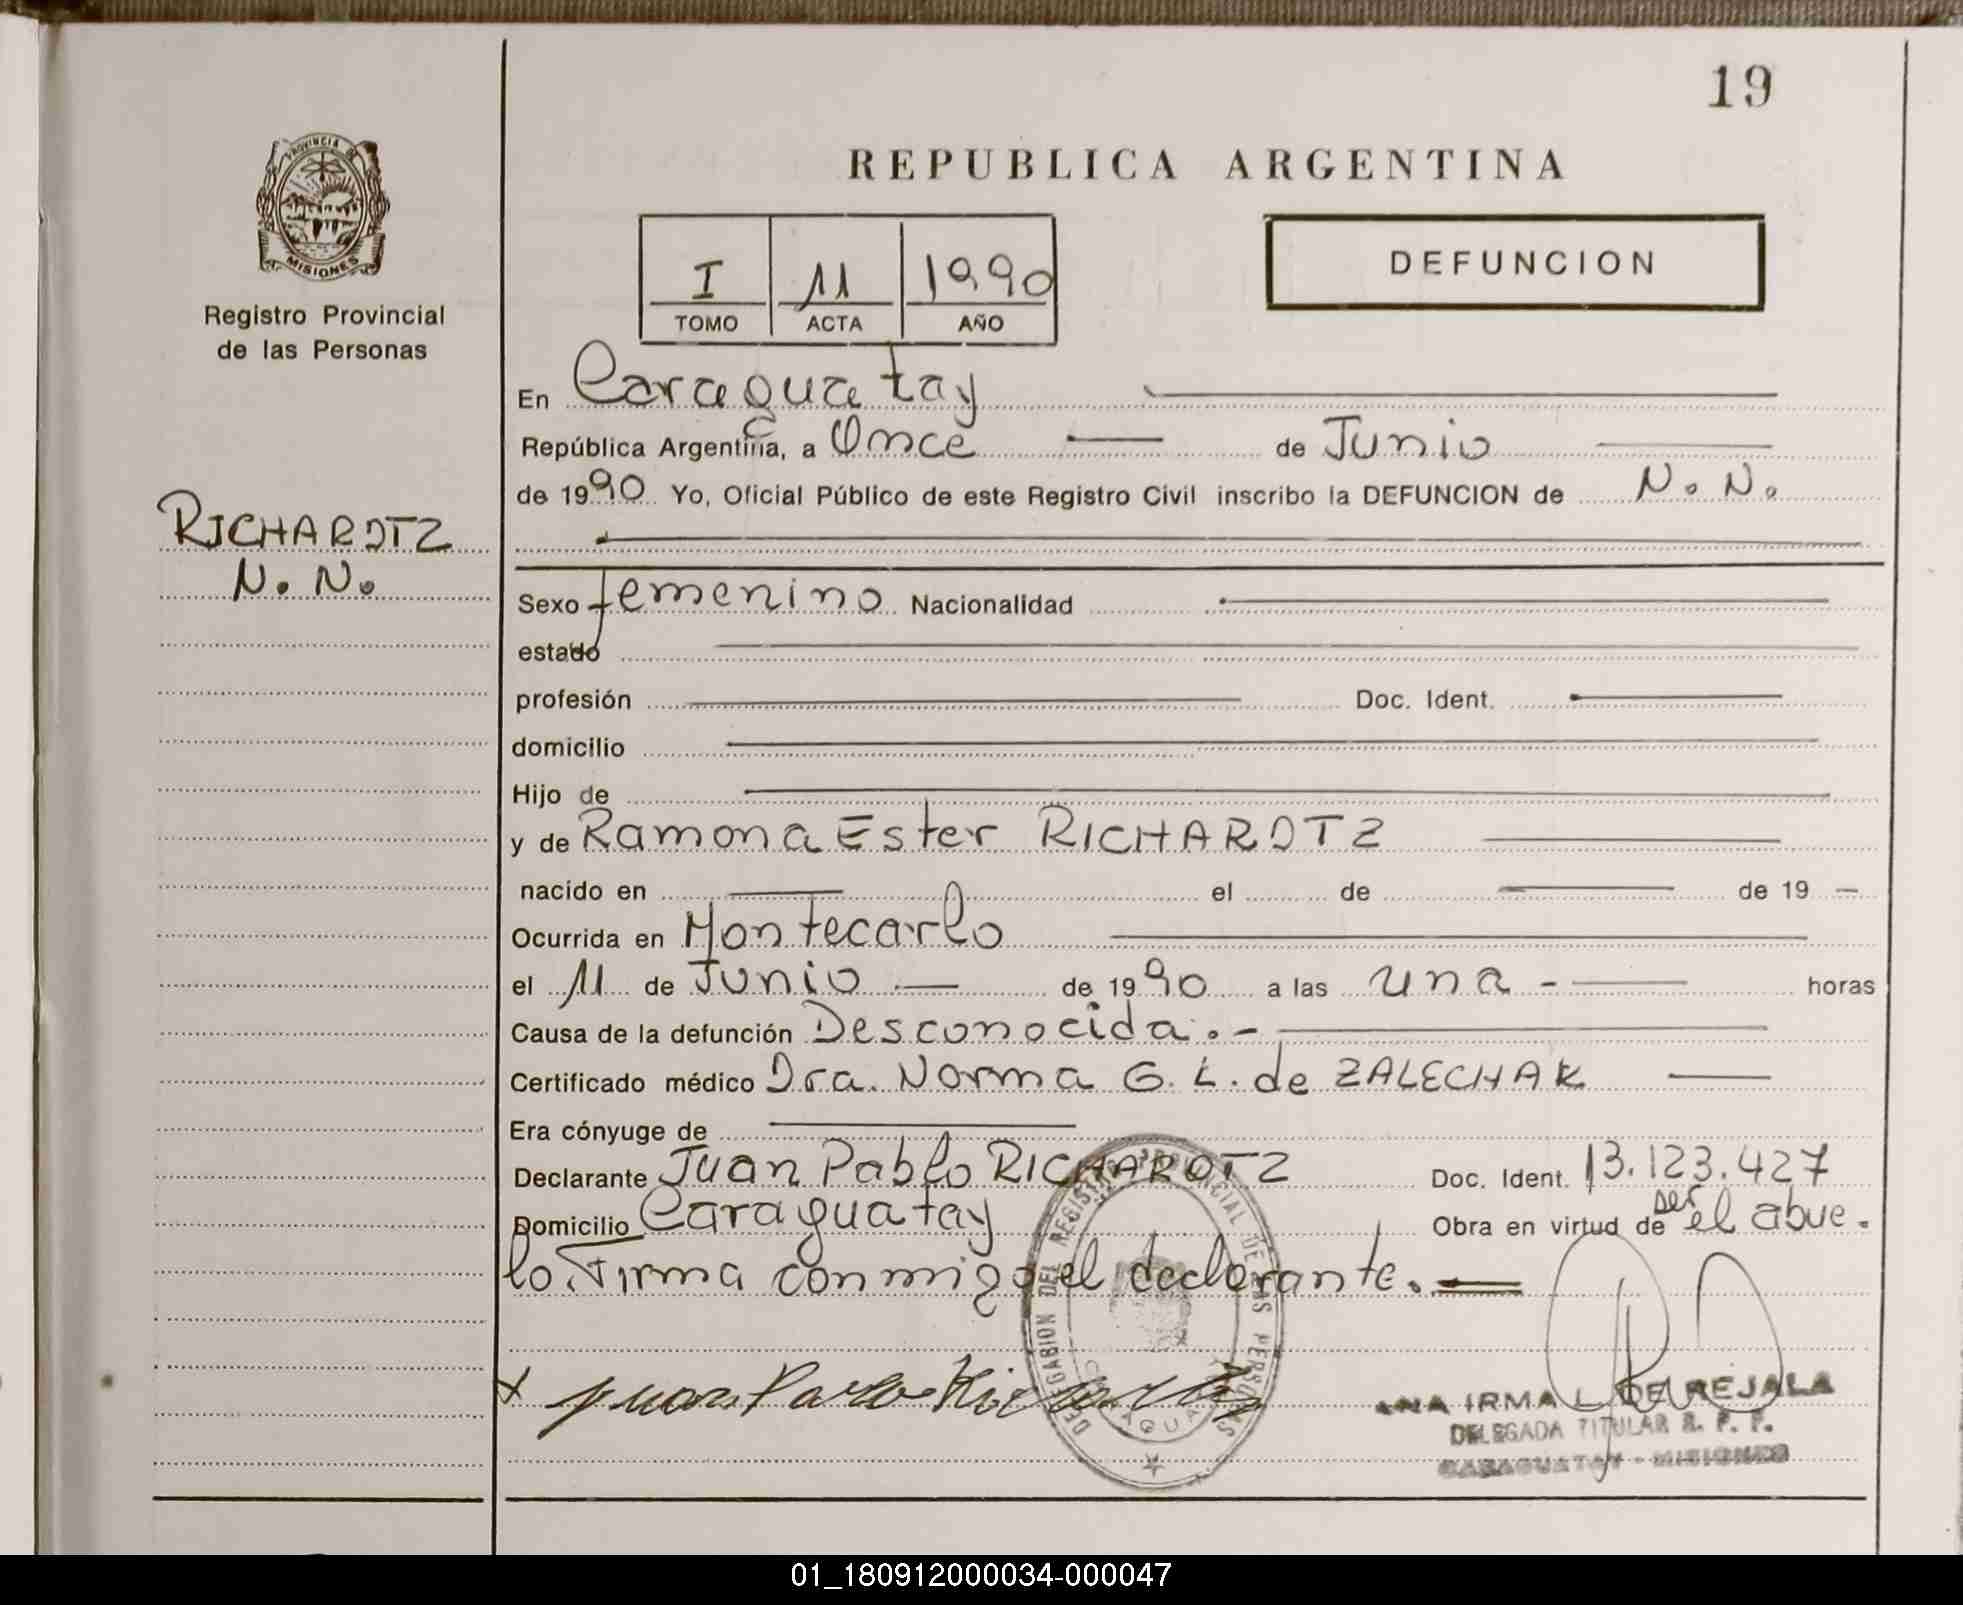 19
PROVINCIA DE
MISIONES
Registro Provincial
de las Personas
REPUBLICA ARGENTINA
I 11 1990
TOMO ACTA AÑO
DEFUNCION
En Caraguatay
República Argentina, a Once de Junio
de 1990 Yo, Oficial Público de este Registro Civil inscribo la DEFUNCION de N. N.
RICHARDTZ
N. N.
Sexo femenino Nacionalidad
estado
profesión Doc. Ident.
domicilio
Hijo de
y de Ramona Ester RICHARDTZ
nacido en el de de 19 —
Ocurrida en Montecarlo
el 11 de Junio — de 1990 a las una - horas
Causa de la defunción Desconocida.-
Certificado médico Dra. Norma G. L. de ZALECHAK
Era cónyuge de
Declarante Juan Pablo RICHARDTZ Doc. Ident. 13.123.427
Domicilio Caraguatay Obra en virtud de ser el abue-
lo. Firma conmigo el declarante.
DELEGACION DEL REGISTRO PROVINCIAL DE LAS PERSONAS
CARAGUATAY
x Juan Pablo
ANA IRMA L. DE REJALA
DELEGADA TITULAR R. P. P.
CARAGUATAY - MISIONES
01_180912000034-000047